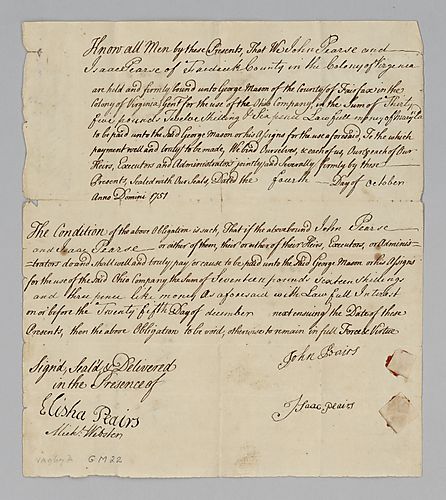 Know all Men by these Presents, That We John Pearse and
Isaac Pearse of Frederick County in the Colony of Virginia
are held and firmly bound unto George Mason of the County of Fairfax in the
Colony of Virginia Gent for the use of the Ohio Company, in the Sum of Thirty
five pounds Twelve Shillings & Six pence Lawfull money of Maryland
to be paid unto the said George Mason or his Assigns for the use aforesaid, To the which
payment well and truly to be made, We bind Ourselves, & each of us, Our & each of Our
Heirs, Executors and Administrators jointly and Severally firmly by these
Presents, Sealed with Our Seals, Dated the fourth Day of October
Anno Domini 1751
The Condition of the above Obligation is such, That if the above bound John Pearse
and Isaac Pearse or either of them, their or either of their Heirs, Executors, or Adminis-
trators do and shall well and truly pay, or cause to be paid unto the Said George Mason or his Assigns
for the use of the Said Ohio Company the Sum of Seventeen pounds Sixteen Shillings
and three pence like money as aforesaid with Lawfull Interest
on or before the Twenty fifth Day of december next ensuing the Date of these
Presents, then the above Obligation to be void, otherwise to remain in full Force & Virtue
Signd, Seald, & Delivered
in the Presence of
John Pairs
Elisha Peairs
Isaac peairs
Mich. Webster
GM22